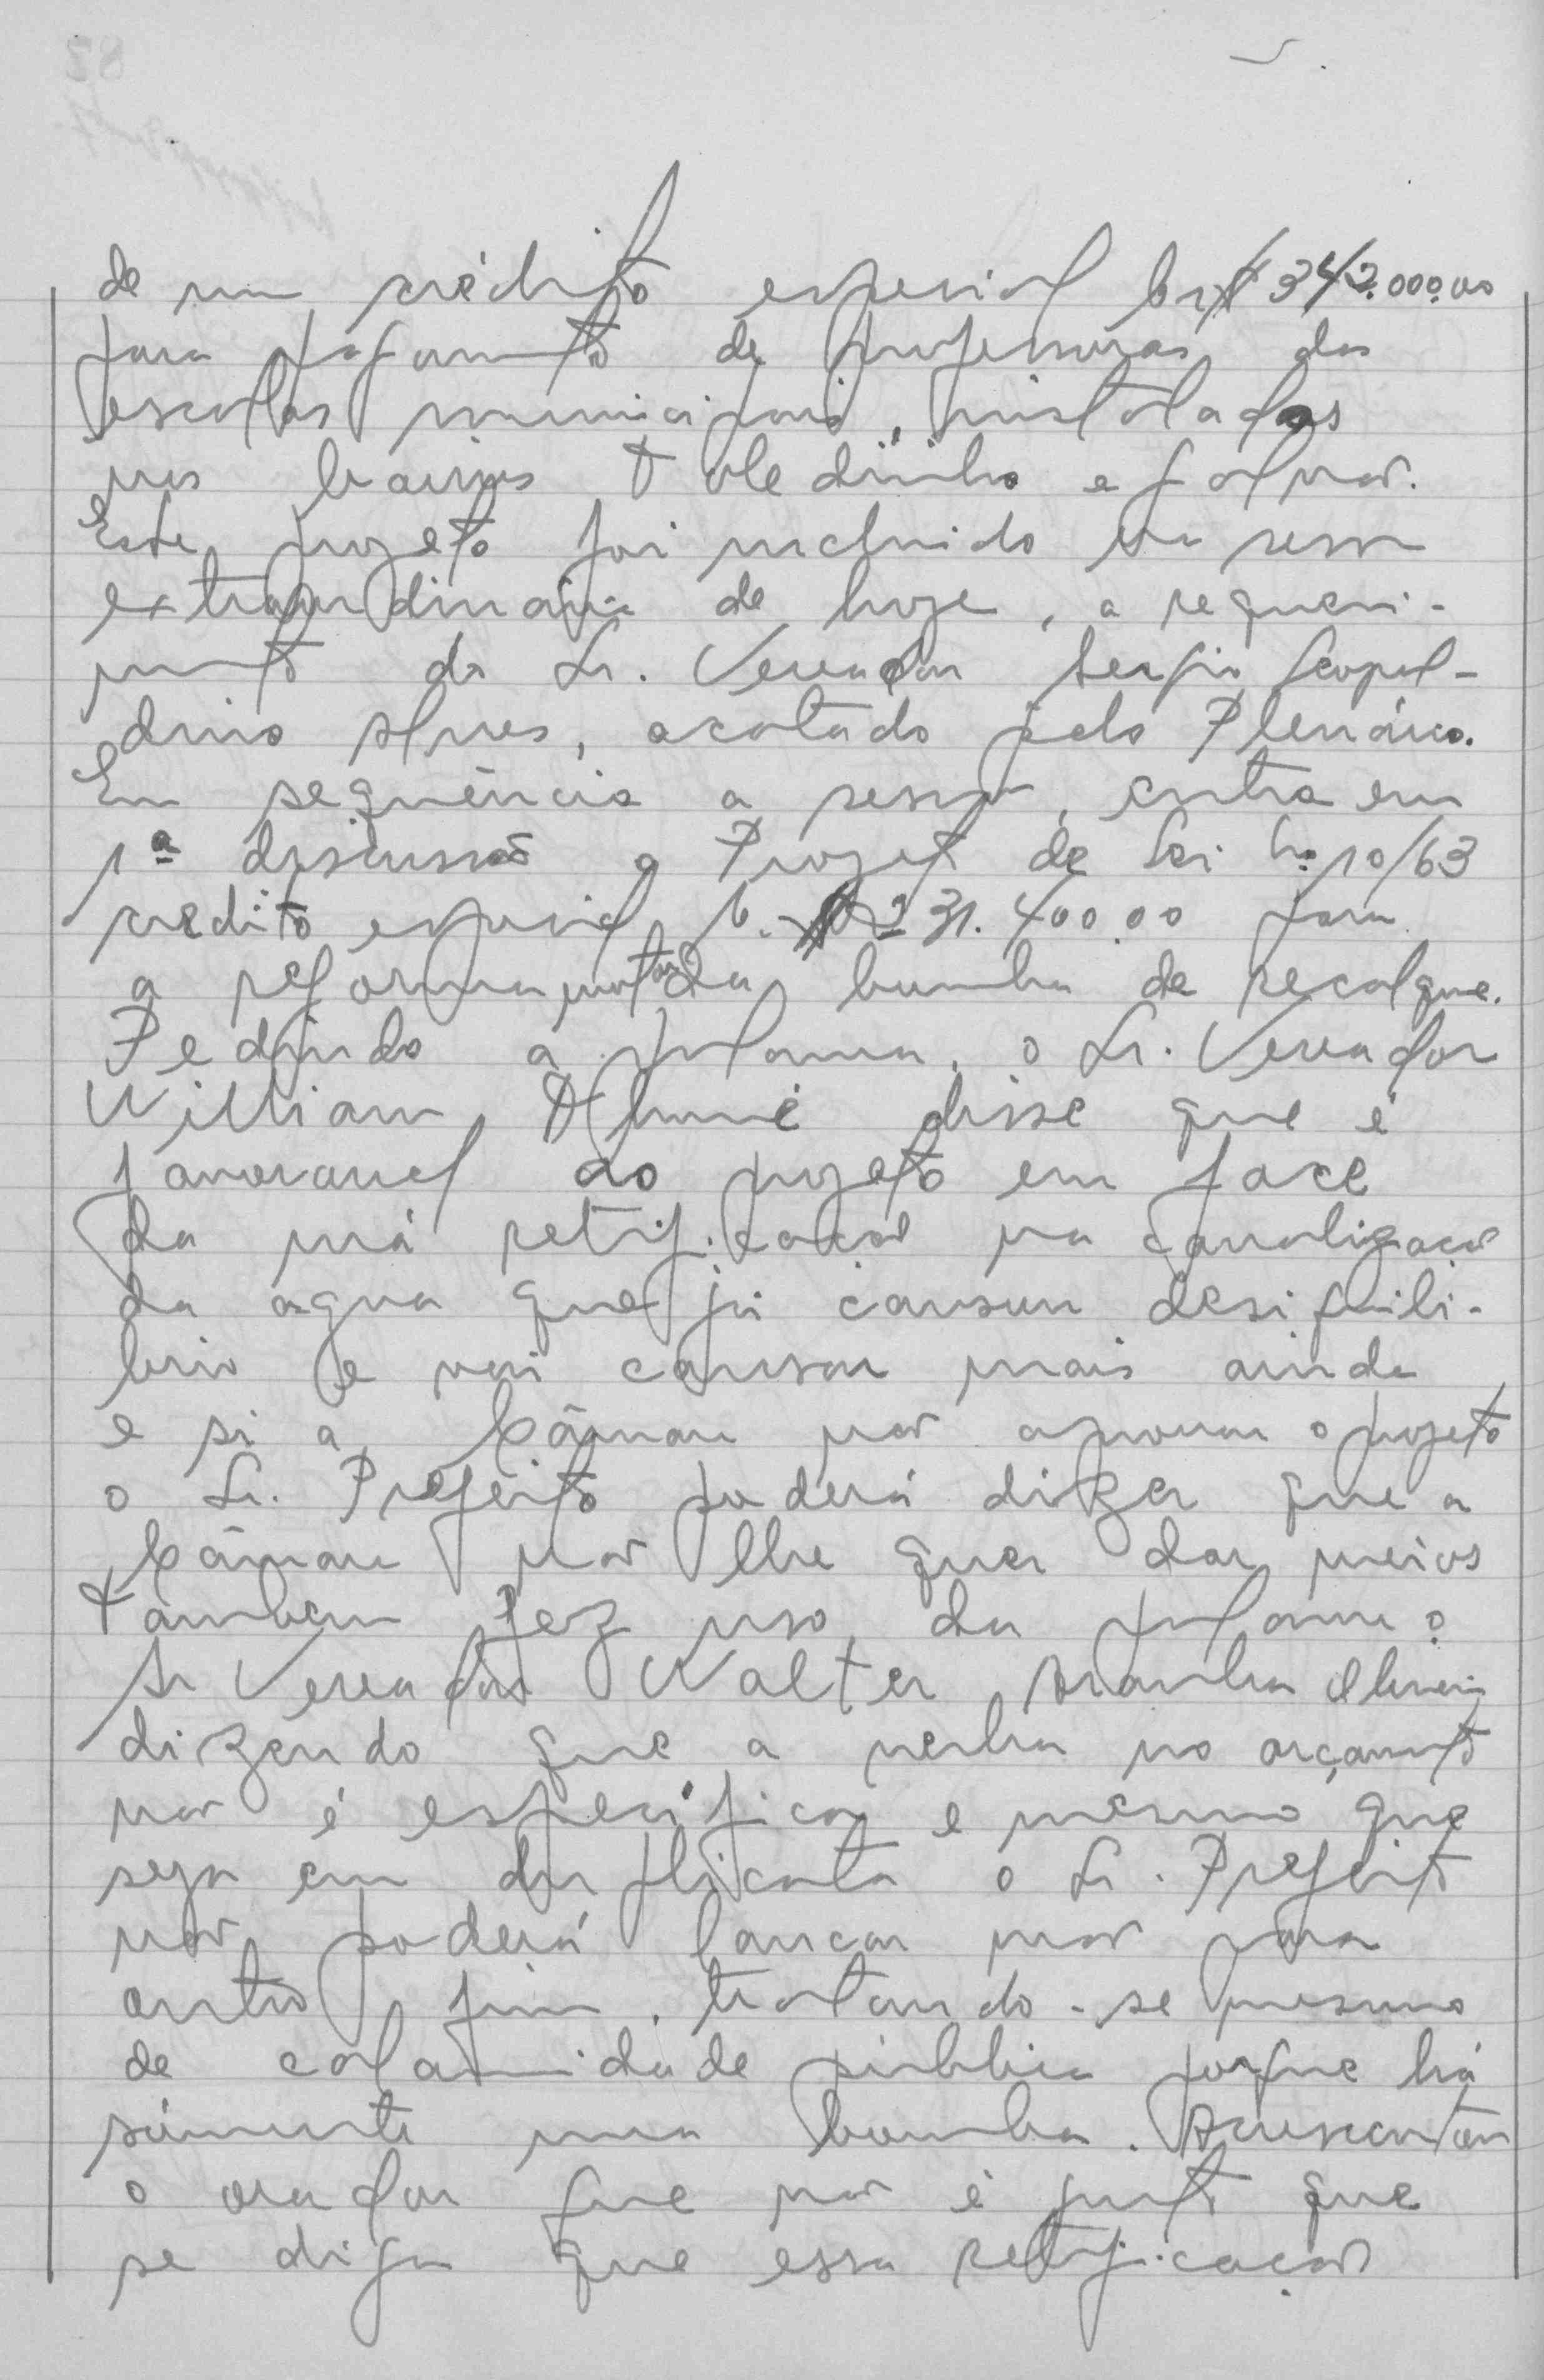 de um crédito especial Cr$ 342.000.00
para pagamento de professoras das
escolas municipais, instaladas
nos bairros Toledinho e Galvão.
Este projeto foi incluido na sessão
extraordinária de hoje, a requeri-
mento do Sr. Vereador Sergio Leopol-
dino Alves, acatado pelo Plenário.
Em sequência a sessão, entra em
1ª discussão o Projeto de Lei no 10/63
credito especial 231.400.00 para
a reforma motor da bomba de recalque.
Pedindo a palavra, o Sr. Vereador
William disse que é
favoravel ao projeto em face
da má retificação na canalização
da agua que já causou desiquili-
brio e vai causar mais ainda
e si a Câmara não aprovar o projeto
o Sr. Prefeito poderá dizer que a
Câmara não lhe quer dar meios
Tambem fez uso da palavra o
Sr Vereador Walter Aranha Oliveira
dizendo que a verba no orçamento
não é especifica e mesmo que
seja em duplicata o Sr. Prefeito
não poderá lançar mão para
outro fim, tratando-se mesmo
de calamidade pública porque há
sómente uma bomba. Acrescentou
o orador que não é justo que
se diga que essa retificação